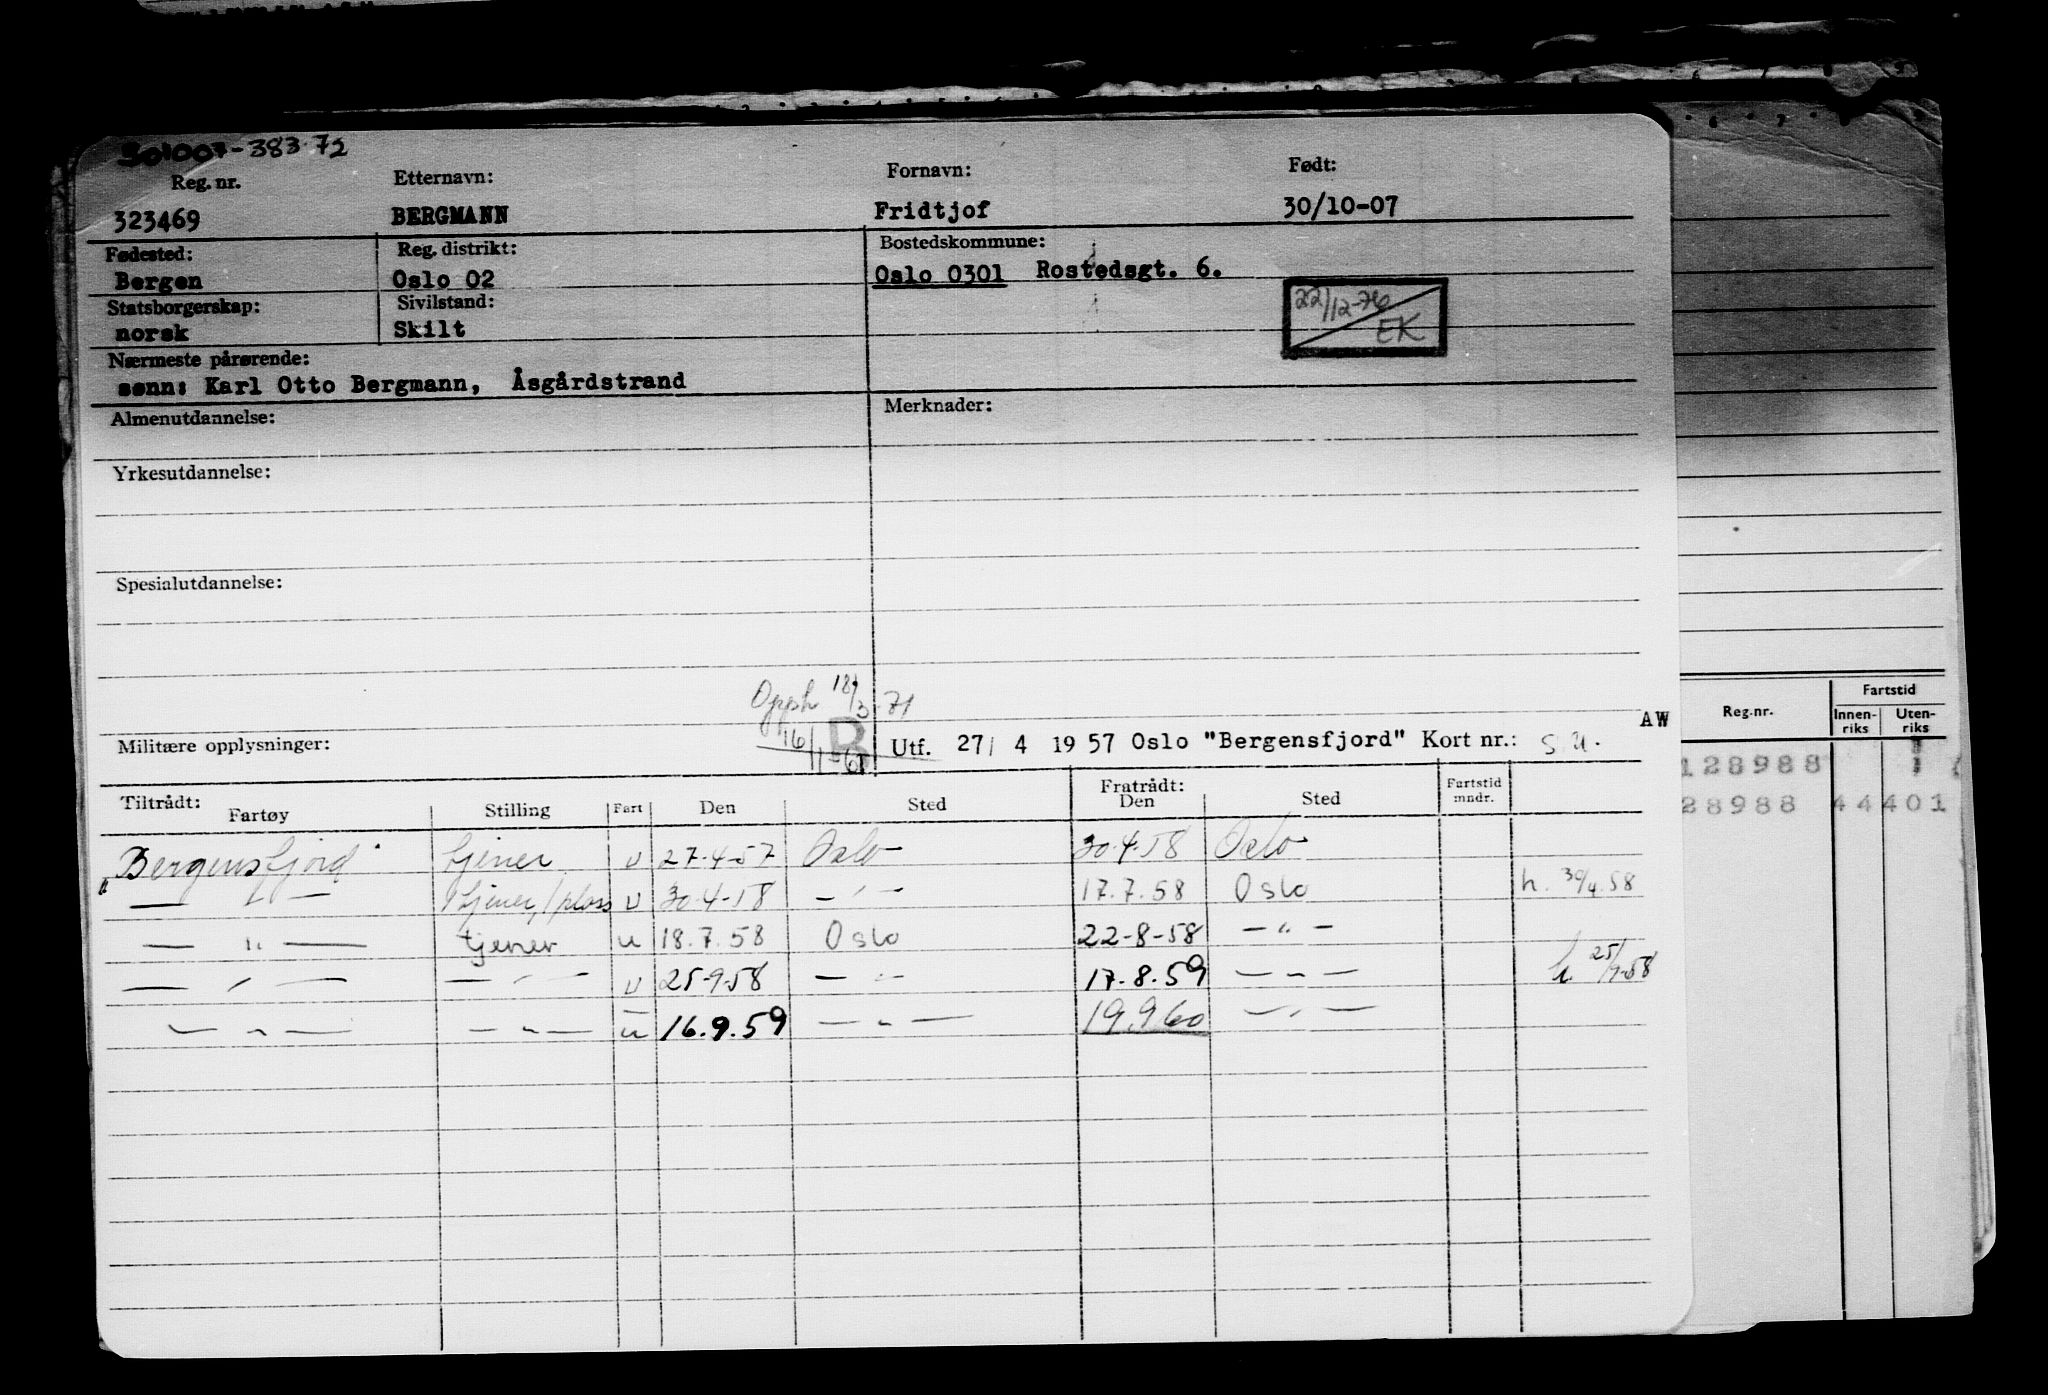 301007-38372
Reg. nr. Etternavn: Fornavn: Født:
323469 BERGMANN Fridtjof 30/10-07
Fødested: Reg. distrikt: Bostedskommune:
Bergen Oslo 02 Oslo 0301 Rostedsgt. 6.
Statsborgerskap: Sivilstand:
norsk Skilt
22/12-76
EK
Nærmeste pårørende:
sønn: Karl Otto Bergmann, Åsgårdstrand
Almenutdannelse: Merknader:
Yrkesutdannelse:
Spesialutdannelse:
Opph 18/3-71
16/1-61
B
AW
Militære opplysninger: Utf. 27/ 4 1957 Oslo "Bergensfjord" Kort nr.: S.U.
Tiltrådt: Fratrådt: Fartstid
Fartøy Stilling Fart Den Sted Den Sted mndr.
"Bergensfjord" tjener u 27-4-57 Oslo 30-4-58 Oslo
— " — tjener, / u 30-4-58 — " — 17.7.58 Oslo h. 30/4.58
— " — tjener u 18.7.58 Oslo 22-8-58 — " —
— " — — " — u 25-9-58 — " — 17.8.59 — " — h 25/9-58
— " — — " — u 16.9.59 — " — 19.9.60 — " —
Reg.nr. Fartstid
Innen-riks Uten-riks
128988 1
28988 44 401